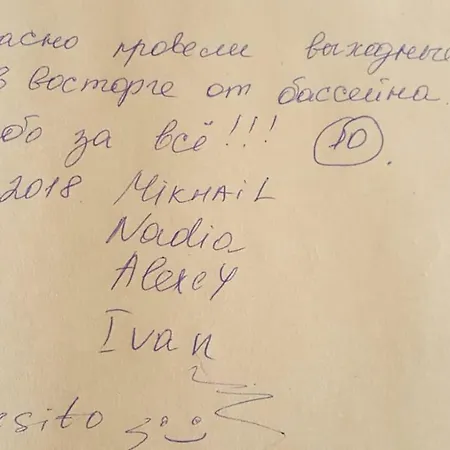 асно провели выходные
в восторге от бассейна.
бо за всё!!! 10.
2018. MIKHAIL
Nadia
Alexey
Ivan
esito